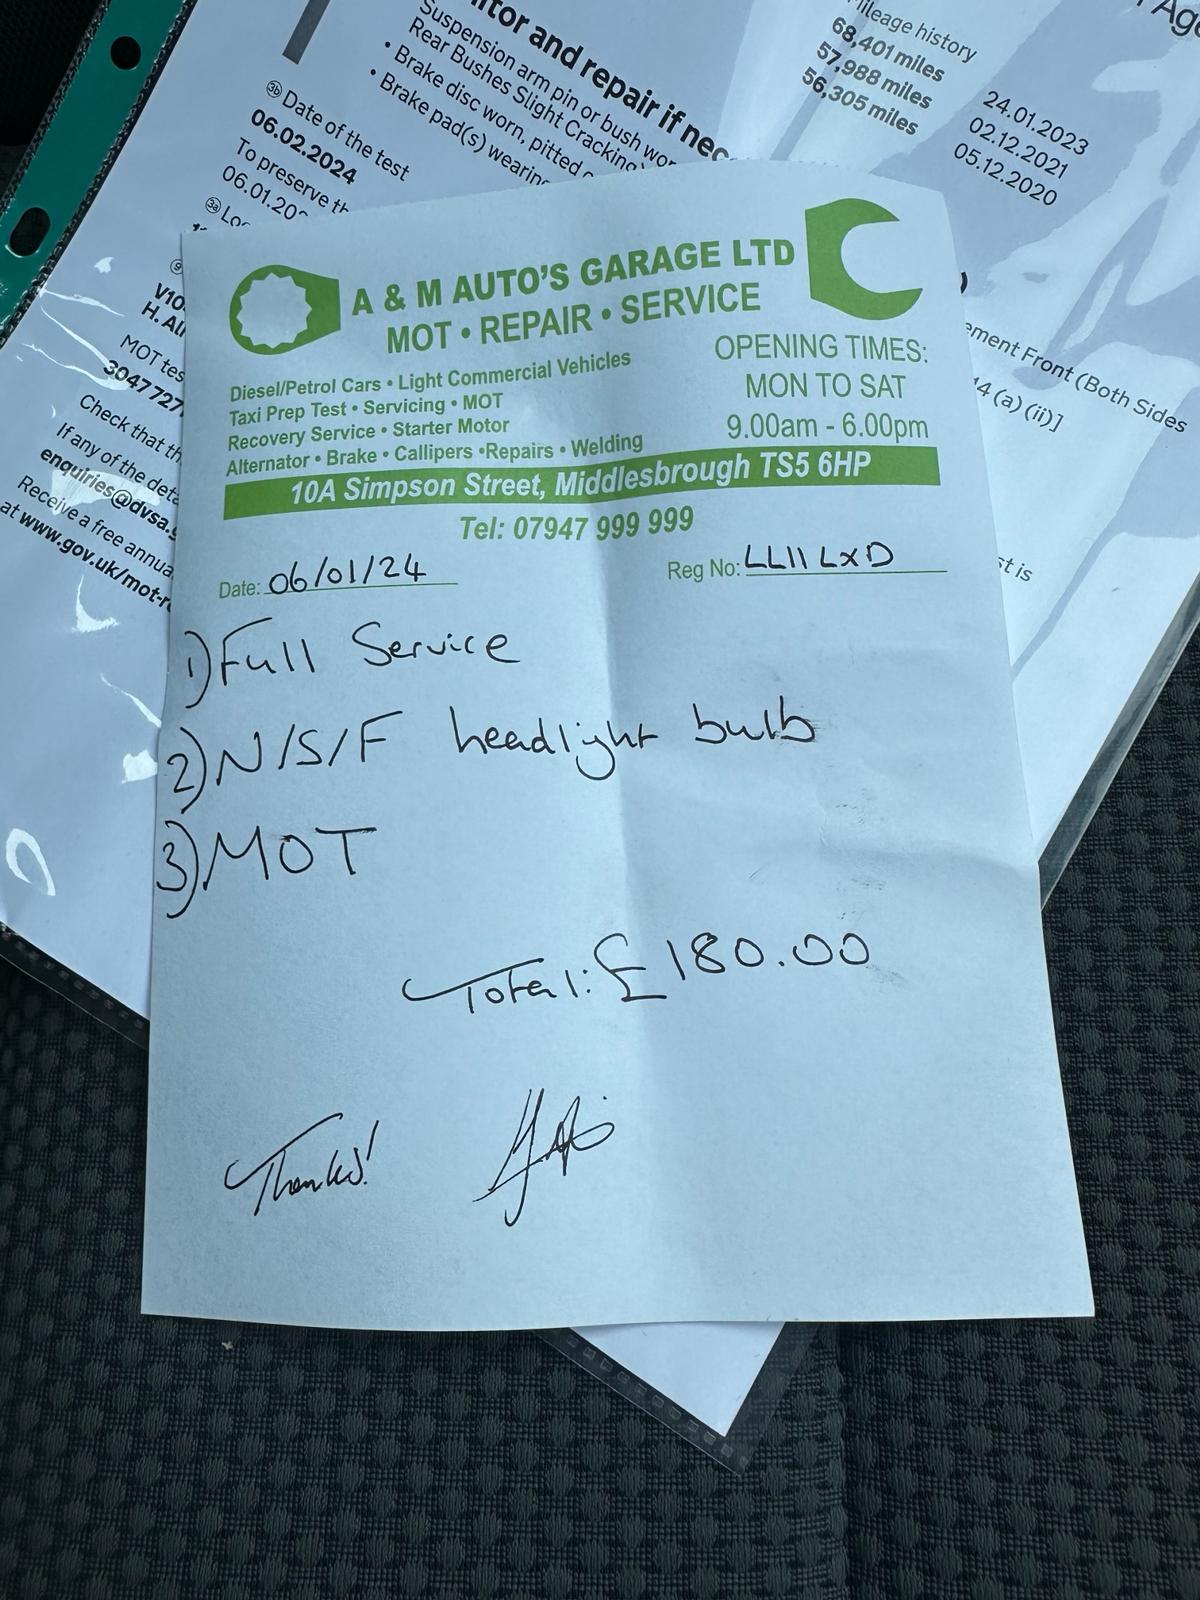 itor and repair if nec
Suspension arm pin or bush wor
Rear Bushes Slight Cracking
• Brake disc worn, pitted
• Brake pad(s) wearing
3b Date of the test
06.02.2024
To preserve th
06.01.20
3a Loc
Mileage history
68,401 miles 24.01.2023
57,988 miles 02.12.2021
56,305 miles 05.12.2020
9
V10
H. Al
MOT tes
3047727
Check that th
If any of the deta
enquiries@dvsa.g
Receive a free annua
at www.gov.uk/mot-r
ement Front (Both Sides
14 (a) (ii)]
st is
A & M AUTO'S GARAGE LTD
MOT • REPAIR • SERVICE
Diesel/Petrol Cars • Light Commercial Vehicles
Taxi Prep Test • Servicing • MOT
Recovery Service • Starter Motor
Alternator • Brake • Callipers •Repairs • Welding
OPENING TIMES:
MON TO SAT
9.00am - 6.00pm
10A Simpson Street, Middlesbrough TS5 6HP
Tel: 07947 999 999
Date: 06/01/24 Reg No: LL11 LXD
1) Full Service
2) N/S/F headlight bulb
3) MOT
Total: £180.00
Thanks!